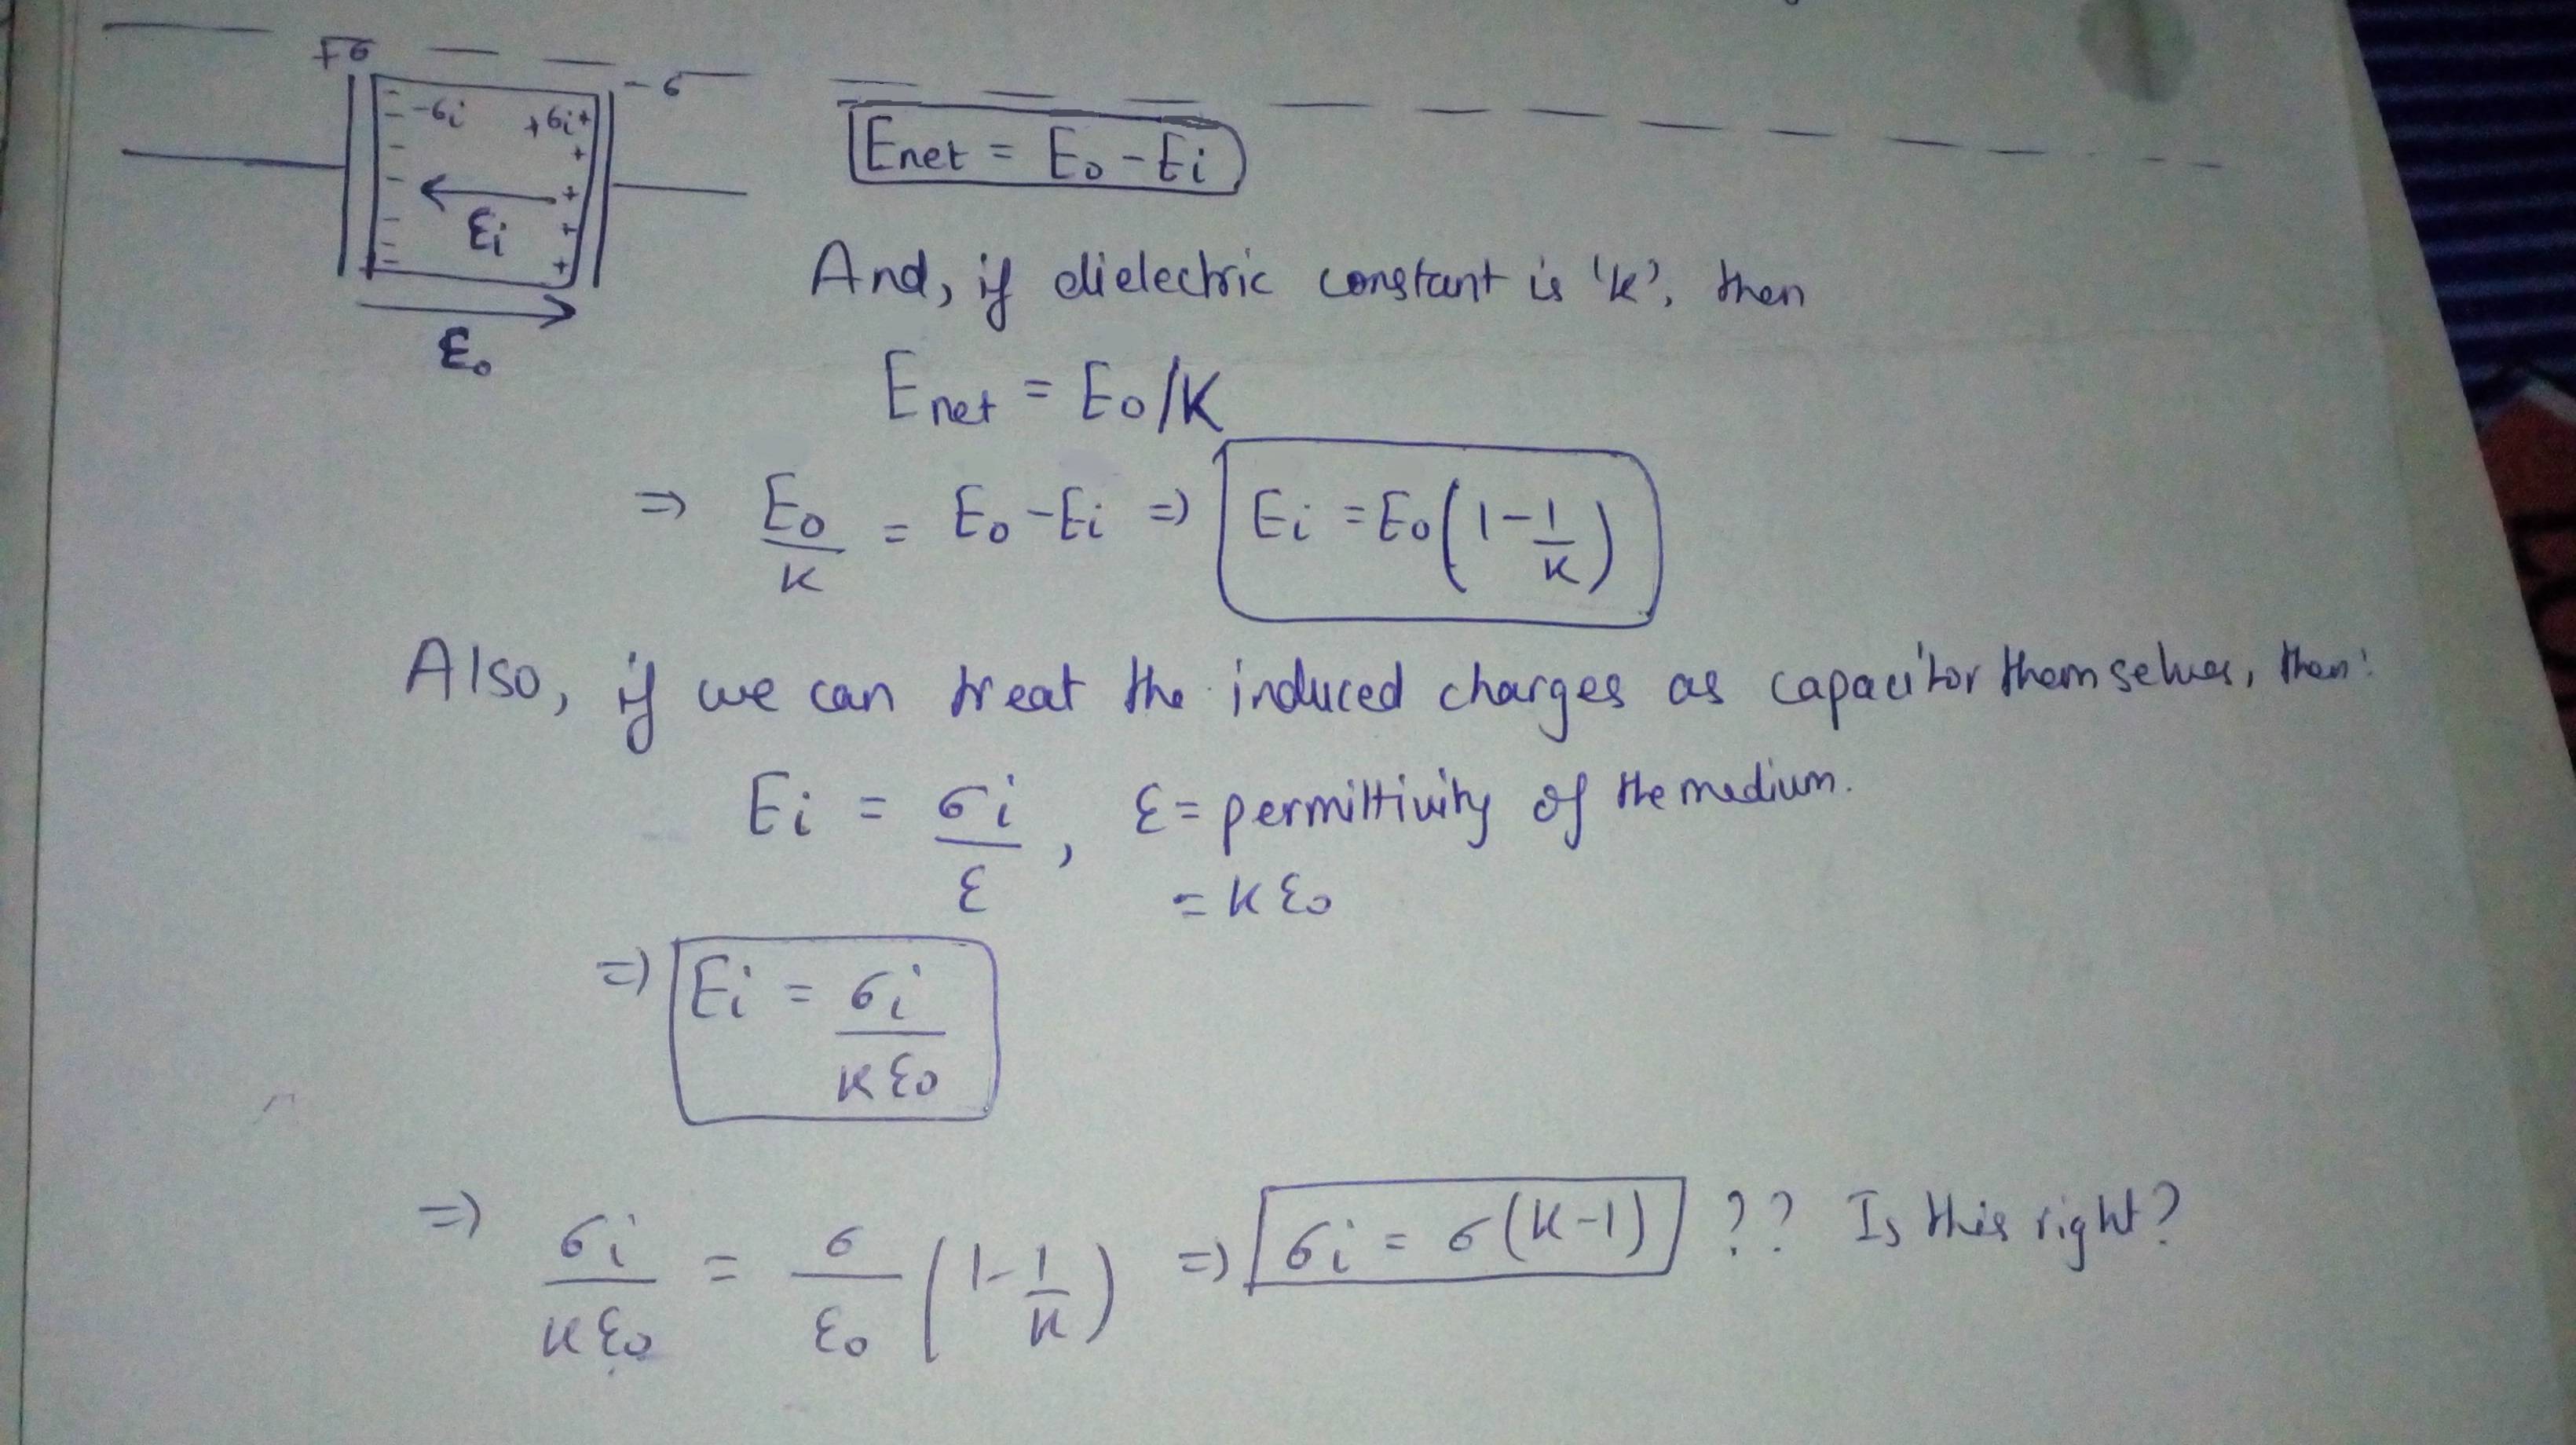 +σ
-σ
-σi +σi +
Ei
E₀
Enet = E₀ - Ei
And, if dielectric constant is 'k', then
Enet = E₀/K
⇒ E₀/K = E₀ - Ei ⇒ Ei = E₀(1 - 1/K)
Also, if we can treat the induced charges as capacitor themselves, then:
Ei = σi/ε, ε = permittivity of the medium.
= Kε₀
⇒ Ei = σi/Kε₀
⇒ σi/Kε₀ = σ/ε₀ (1 - 1/K) ⇒ σi = σ(K-1) ?? Is this right?